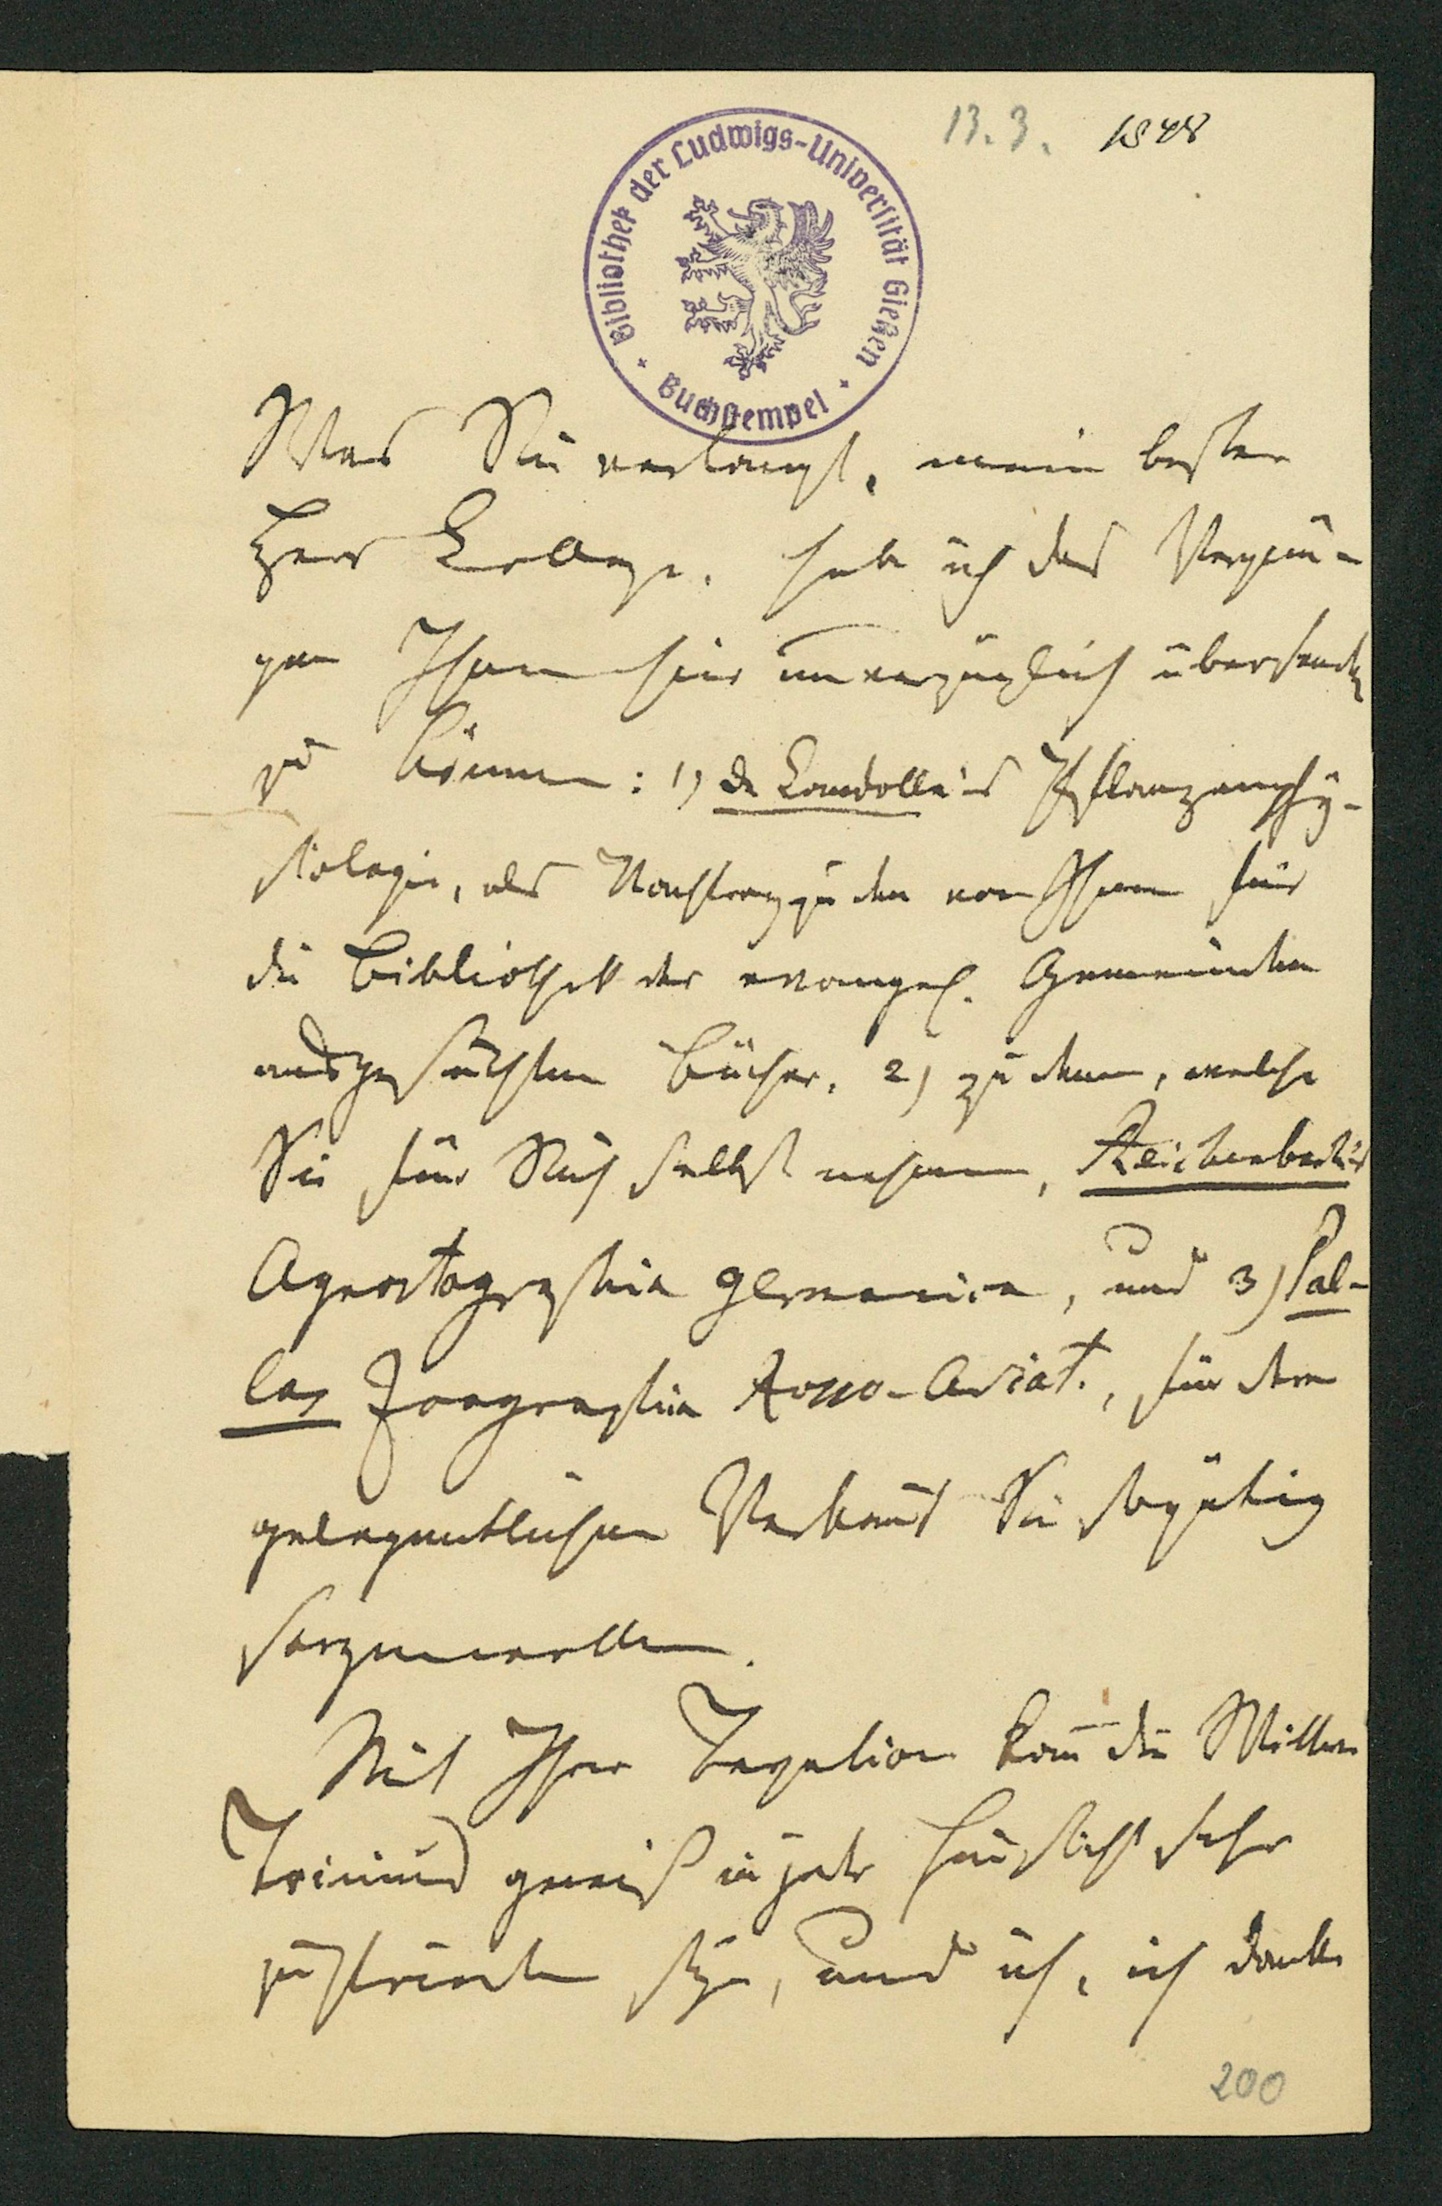 13.3. 1848
Bibliothek der Ludwigs-Universität Gießen
Buchstempel
Was Sie verlangt, mein bester
Herr College, habe ich das Vergnü-
gen Ihnen hier unverzüglich übersenden
zu können: 1) de Candolle's Pflanzenphy-
siologie, als Nachtrag zu den von Ihnen für
die Bibliothek der evangel. Gemeinden
ausgesuchten Bücher. 2) zu denen, welche
Sie für Sich selbst nehmen, Reichenbach's
Agrostographia germanica, und 3) Pal-
las Zoographia Rosso-Asiat., für deren
gelegentlichen Verkauf Sie so gütig
sorgen wollen.
Mit Ihrer kann die
gewiß in jeder Hinsicht sehr
zufrieden seyn, und ich, ich danke
200